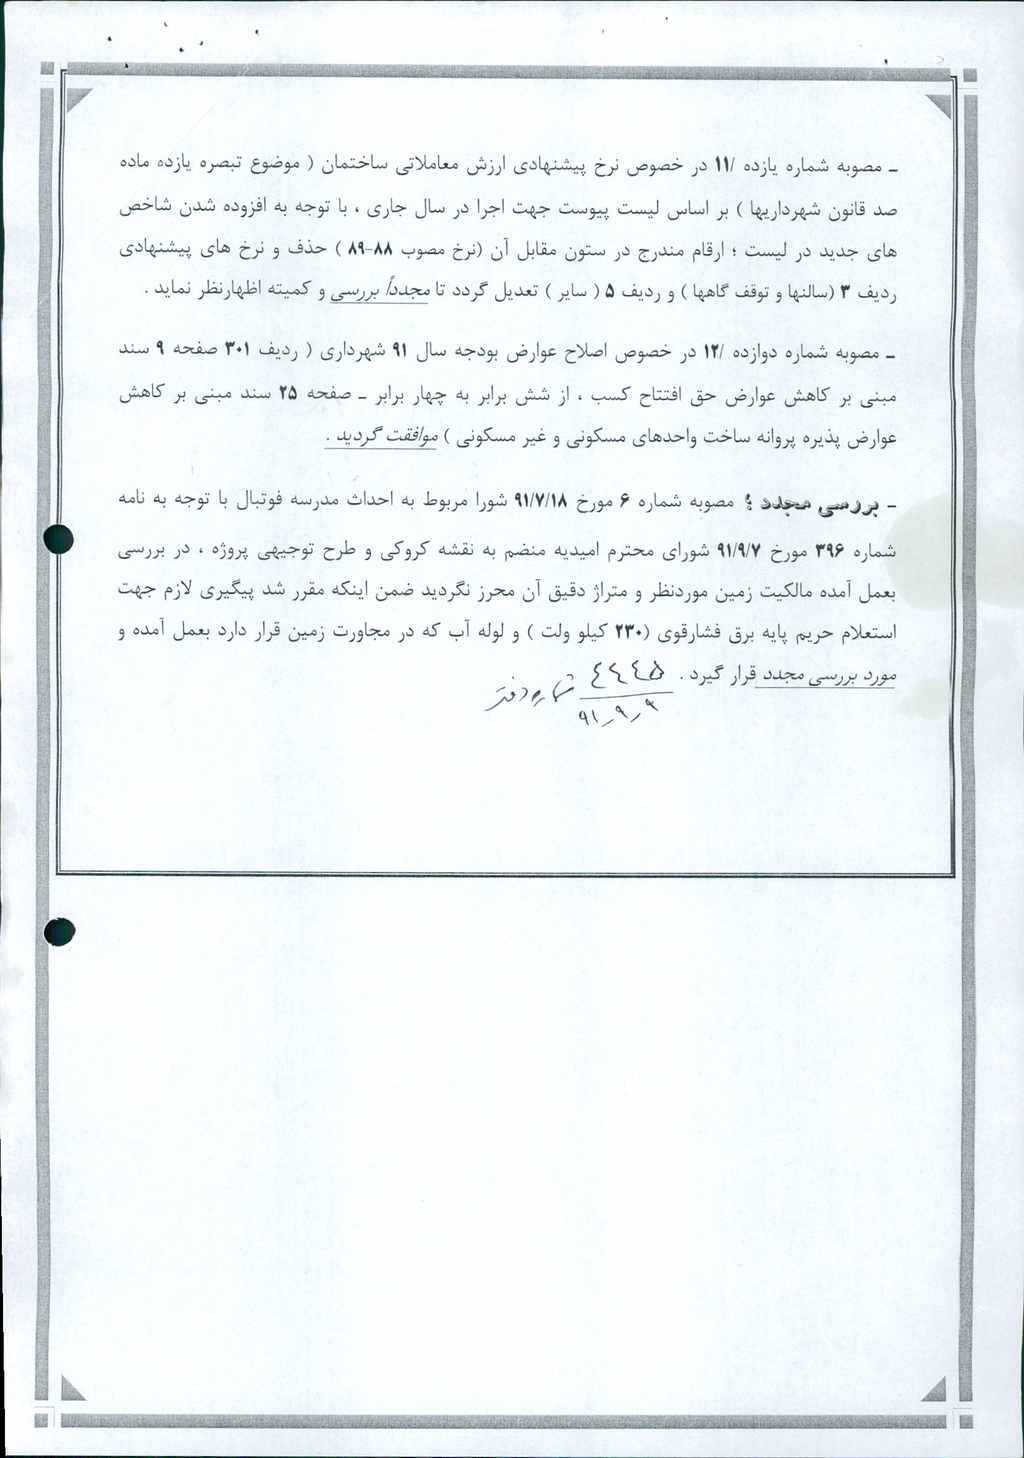 ـ مصوبه شماره یازده /۱۱ در خصوص نرخ پیشنهادی ارزش معاملاتی ساختمان ( موضوع تبصره یازده ماده
صد قانون شهرداریها ) بر اساس لیست پیوست جهت اجرا در سال جاری ، با توجه به افزوده شدن شاخص
های جدید در لیست ؛ ارقام مندرج در ستون مقابل آن (نرخ مصوب ۸۸-۸۹ ) حذف و نرخ های پیشنهادی
ردیف ۳ (سالنها و توقف گاهها ) و ردیف ۵ ( سایر ) تعدیل گردد تا مجدداً بررسی و کمیته اظهارنظر نماید .
ـ مصوبه شماره دوازده /۱۲ در خصوص اصلاح عوارض بودجه سال ۹۱ شهرداری ( ردیف ۳۰۱ صفحه ۹ سند
مبنی بر کاهش عوارض حق افتتاح کسب ، از شش برابر به چهار برابر ـ صفحه ۲۵ سند مبنی بر کاهش
عوارض پذیره پروانه ساخت واحدهای مسکونی و غیر مسکونی ) موافقت گردید .
- بررسی مجدد ؛ مصوبه شماره ۶ مورخ ۹۱/۷/۱۸ شورا مربوط به احداث مدرسه فوتبال با توجه به نامه
شماره ۳۹۶ مورخ ۹۱/۹/۷ شورای محترم امیدیه منضم به نقشه کروکی و طرح توجیهی پروژه ، در بررسی
بعمل آمده مالکیت زمین موردنظر و متراژ دقیق آن محرز نگردید ضمن اینکه مقرر شد پیگیری لازم جهت
استعلام حریم پایه برق فشارقوی (۲۳۰ کیلو ولت ) و لوله آب که در مجاورت زمین قرار دارد بعمل آمده و
مورد بررسی مجدد قرار گیرد .
شماره دفتر
۹۱_۹_۹